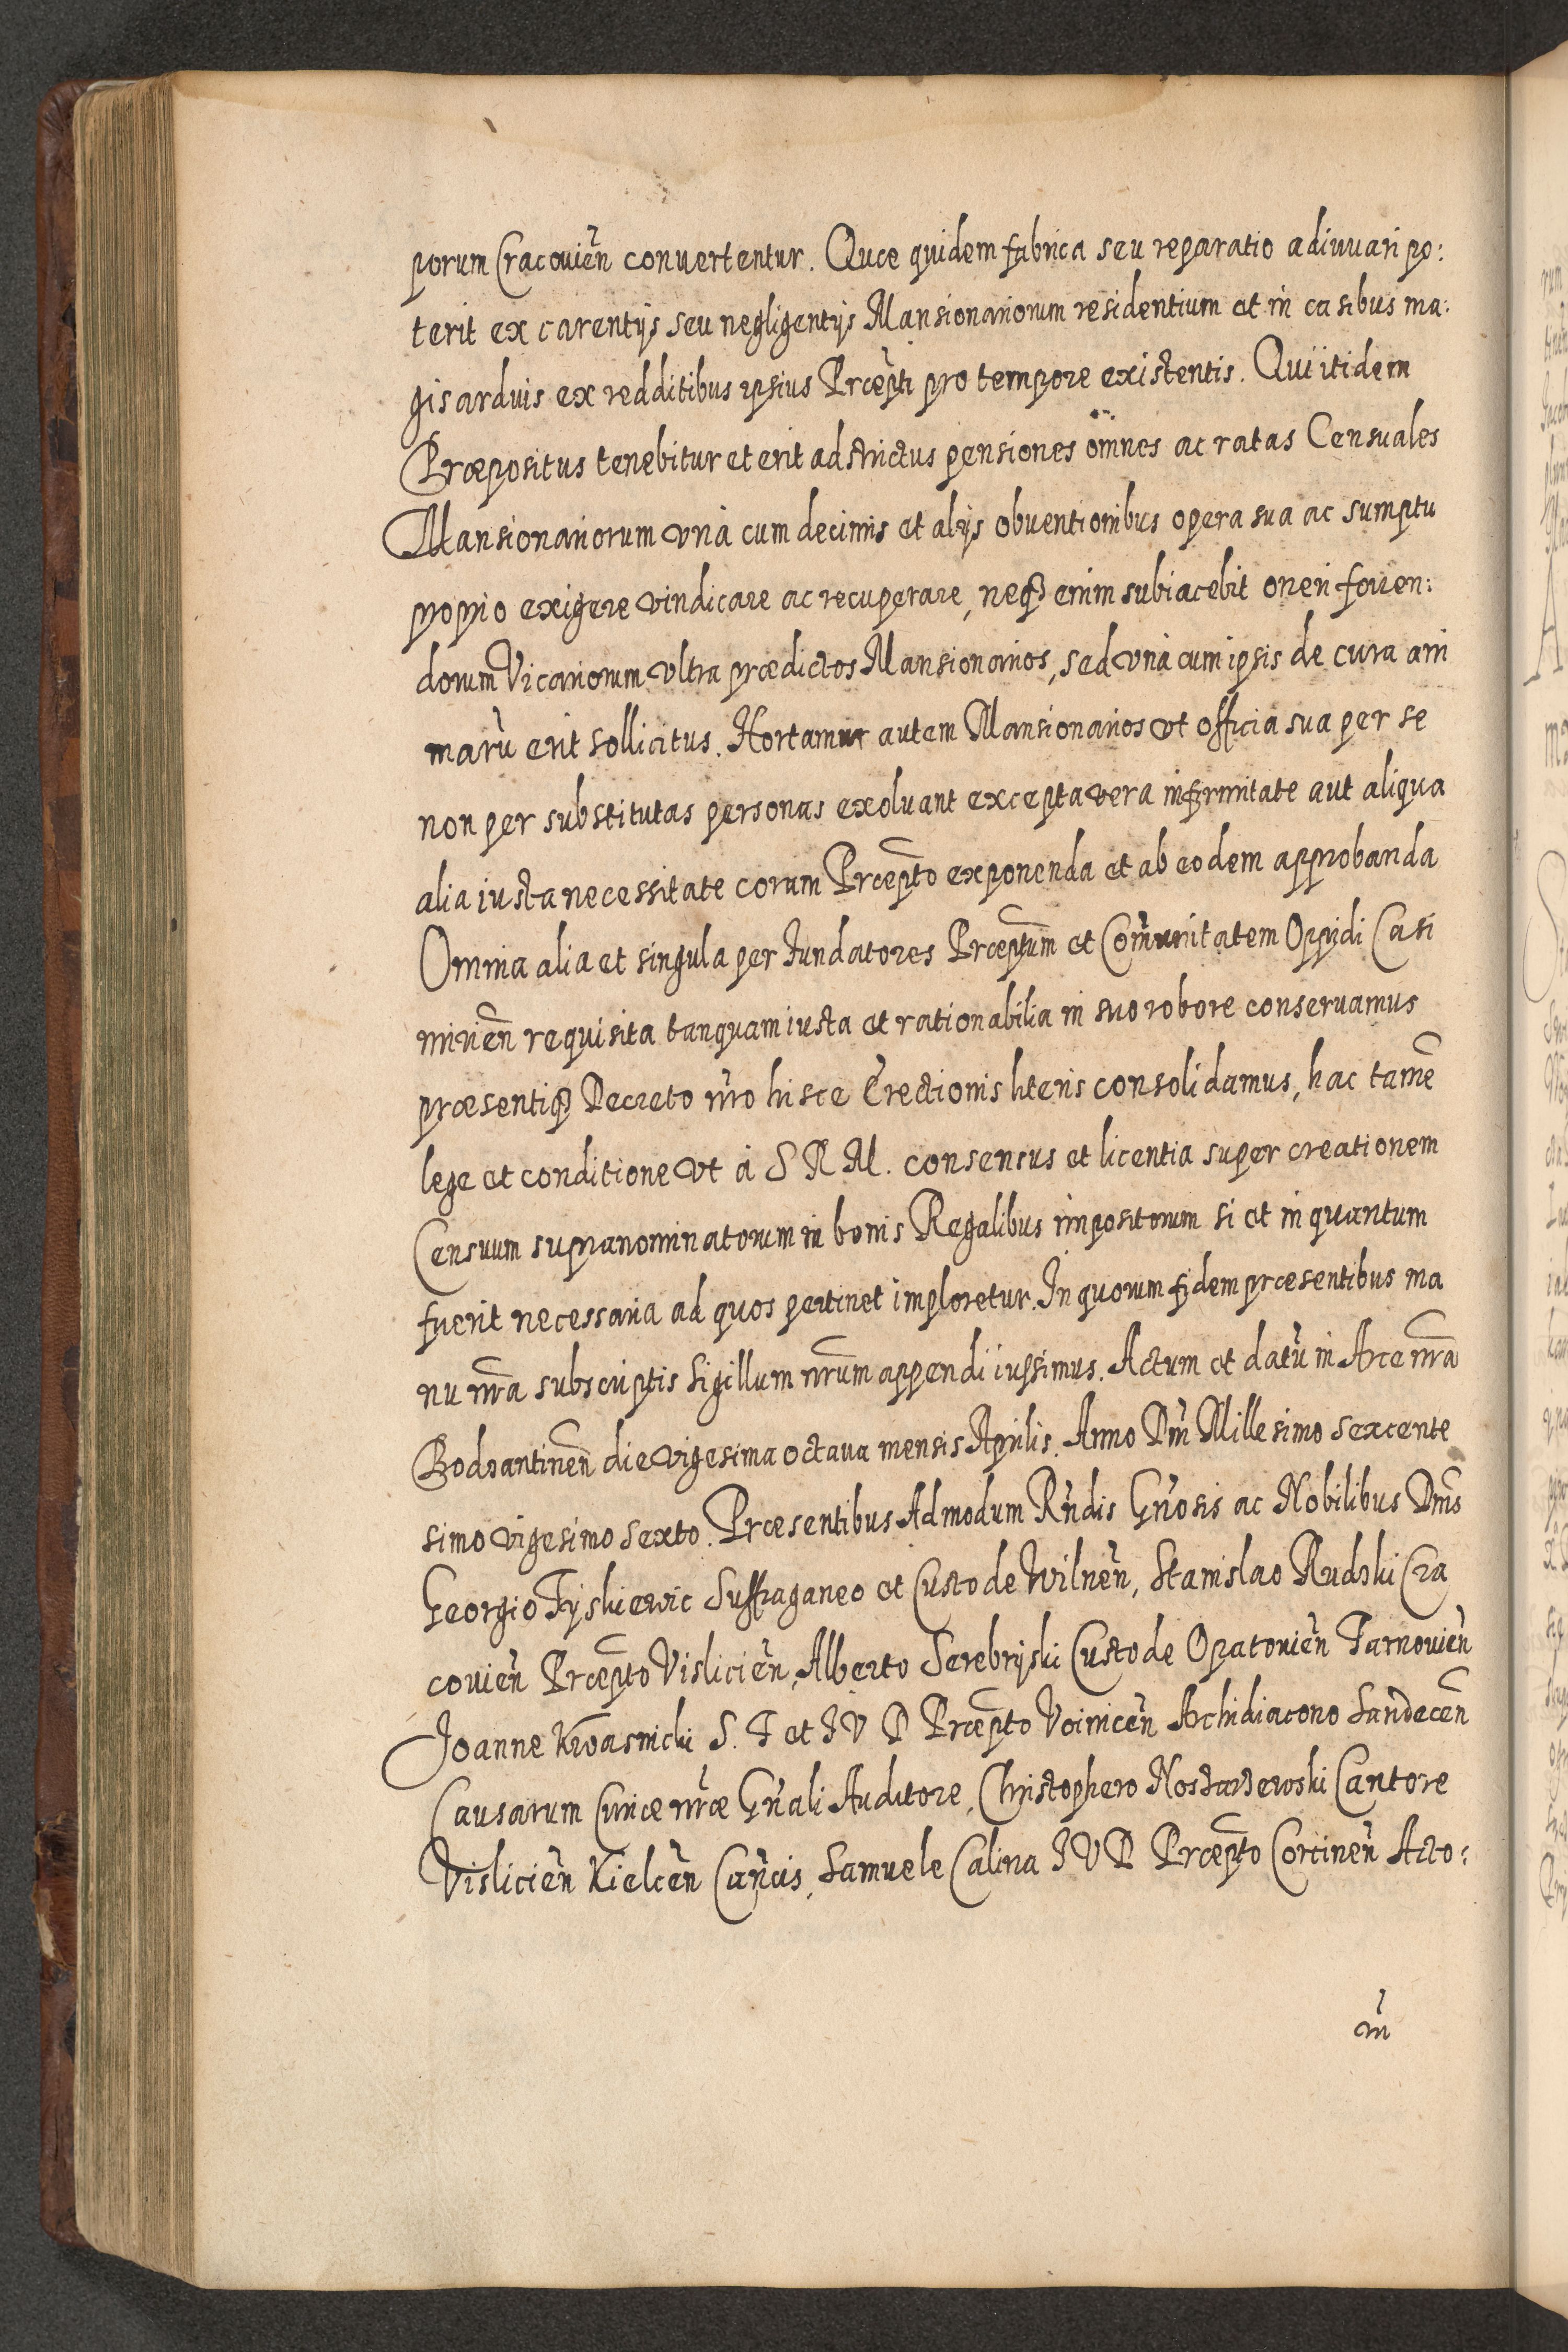 porum Cracouien̄ conuertentur. Quæ quidem fabrica seu reparatio adiuuari po:
terit ex carentijs seu negligentijs Mansionariorum residentium et in casibus ma:
gis arduis ex redditibus ipsius Præpti pro tempore existentis. Qui itidem
Præpositus tenebitur et erit adstrictus pensiones om̄nes ac ratas Censuales
Mansionariorum vnà cum decimis et alijs obuentionibus opera sua ac sumptu
proprio exigere vindicare ac recuperare, neqꝫ enim subiacebit oneri fouen:
dorum Vicariorum vltra prædictos Mansionarios, sed vnà cum ipsis de cura ani
marū erit sollicitus. Hortamur autem Mansionarios vt officia sua per se
non per substitutas personas exoluant excepta vera infirmitate aut aliqua
alia iusta necessitate coram Præpto exponenda et ab eodem approbanda
Omnia alia et singula per fundatores Præptum et Com̄unitatem Oppidi Casi
mirien̄ requisita tanquam iusta et rationabilia in suo robore conseruamus
præsentiqꝫ Decreto nr̄o hisce Erectionis literis consolidamus, hac tamē
lege et conditione vt à S R M. consensus et licentia super creationem
Censuum supranominatorum in bonis Regalibus impositorum si et in quantum
fuerit necessaria ad quos pertinet imploretur. In quorum fidem præsentibus ma
nu nr̄a subscriptis sigillum nr̄um appendi iussimus. Actum et datū in Arce nr̄a
Bodzantinen̄ die vigesima octaua mensis Aprilis. Anno Dn̄i Millesimo sexcente
simo vigesimo sexto. Præsentibus Admodum Rn̄dis Gn̄osis ac Nobilibus Dn̄is
Georgio Tyskiewic Suffraganeo et Custode Wilnen̄, Stanislao Rudzki Cra
couien̄ Præpto Vislicien̄, Alberto Serebryski Custode Opatouien̄ Tarnouien̄
Joanne Kwasnicki S. T et J V D Præpto Voinicen̄ Archidiacono Sandecen̄
Causarum Curiæ nr̄æ Gn̄ali Auditore, Christophero Nostarzewski Cantore
Vislicien̄ Kielcen̄ Can̄cis, Samuele Calina J V D Præpto Corcinen̄ Acto:
m̄